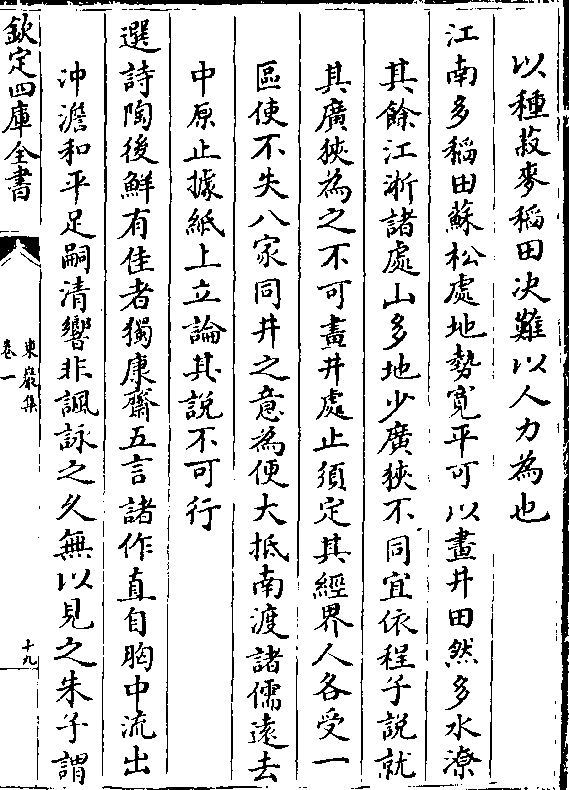 以種菽麥稻田决難以人力為也
江南多稻田蘇松處地勢寛平可以畫井田然多水潦
其餘江淅諸處山多地少廣狹不同宜依程子說就
其廣狹為之不可畫井處止須定其經界人各受一
區使不失八家同井之意為便大抵南渡諸儒逺去
中原止據紙上立論其説不可行
選詩陶後鮮有佳者獨康齋五言諸作直自胸中流出
沖澹和平足嗣清響非諷詠之久無以見之朱子謂
欽定四庫全書
東巖集
卷一
十九